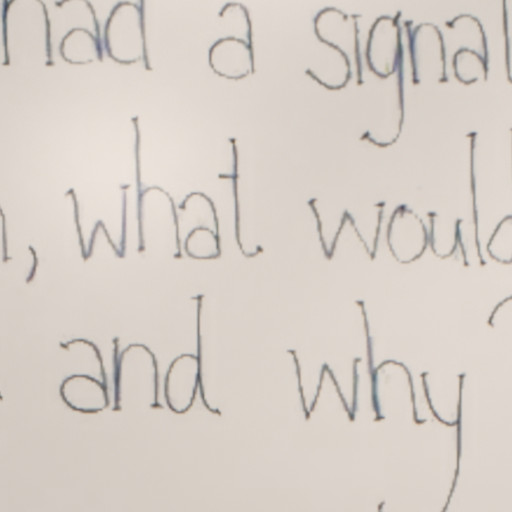 had a signal
, what would
and why?